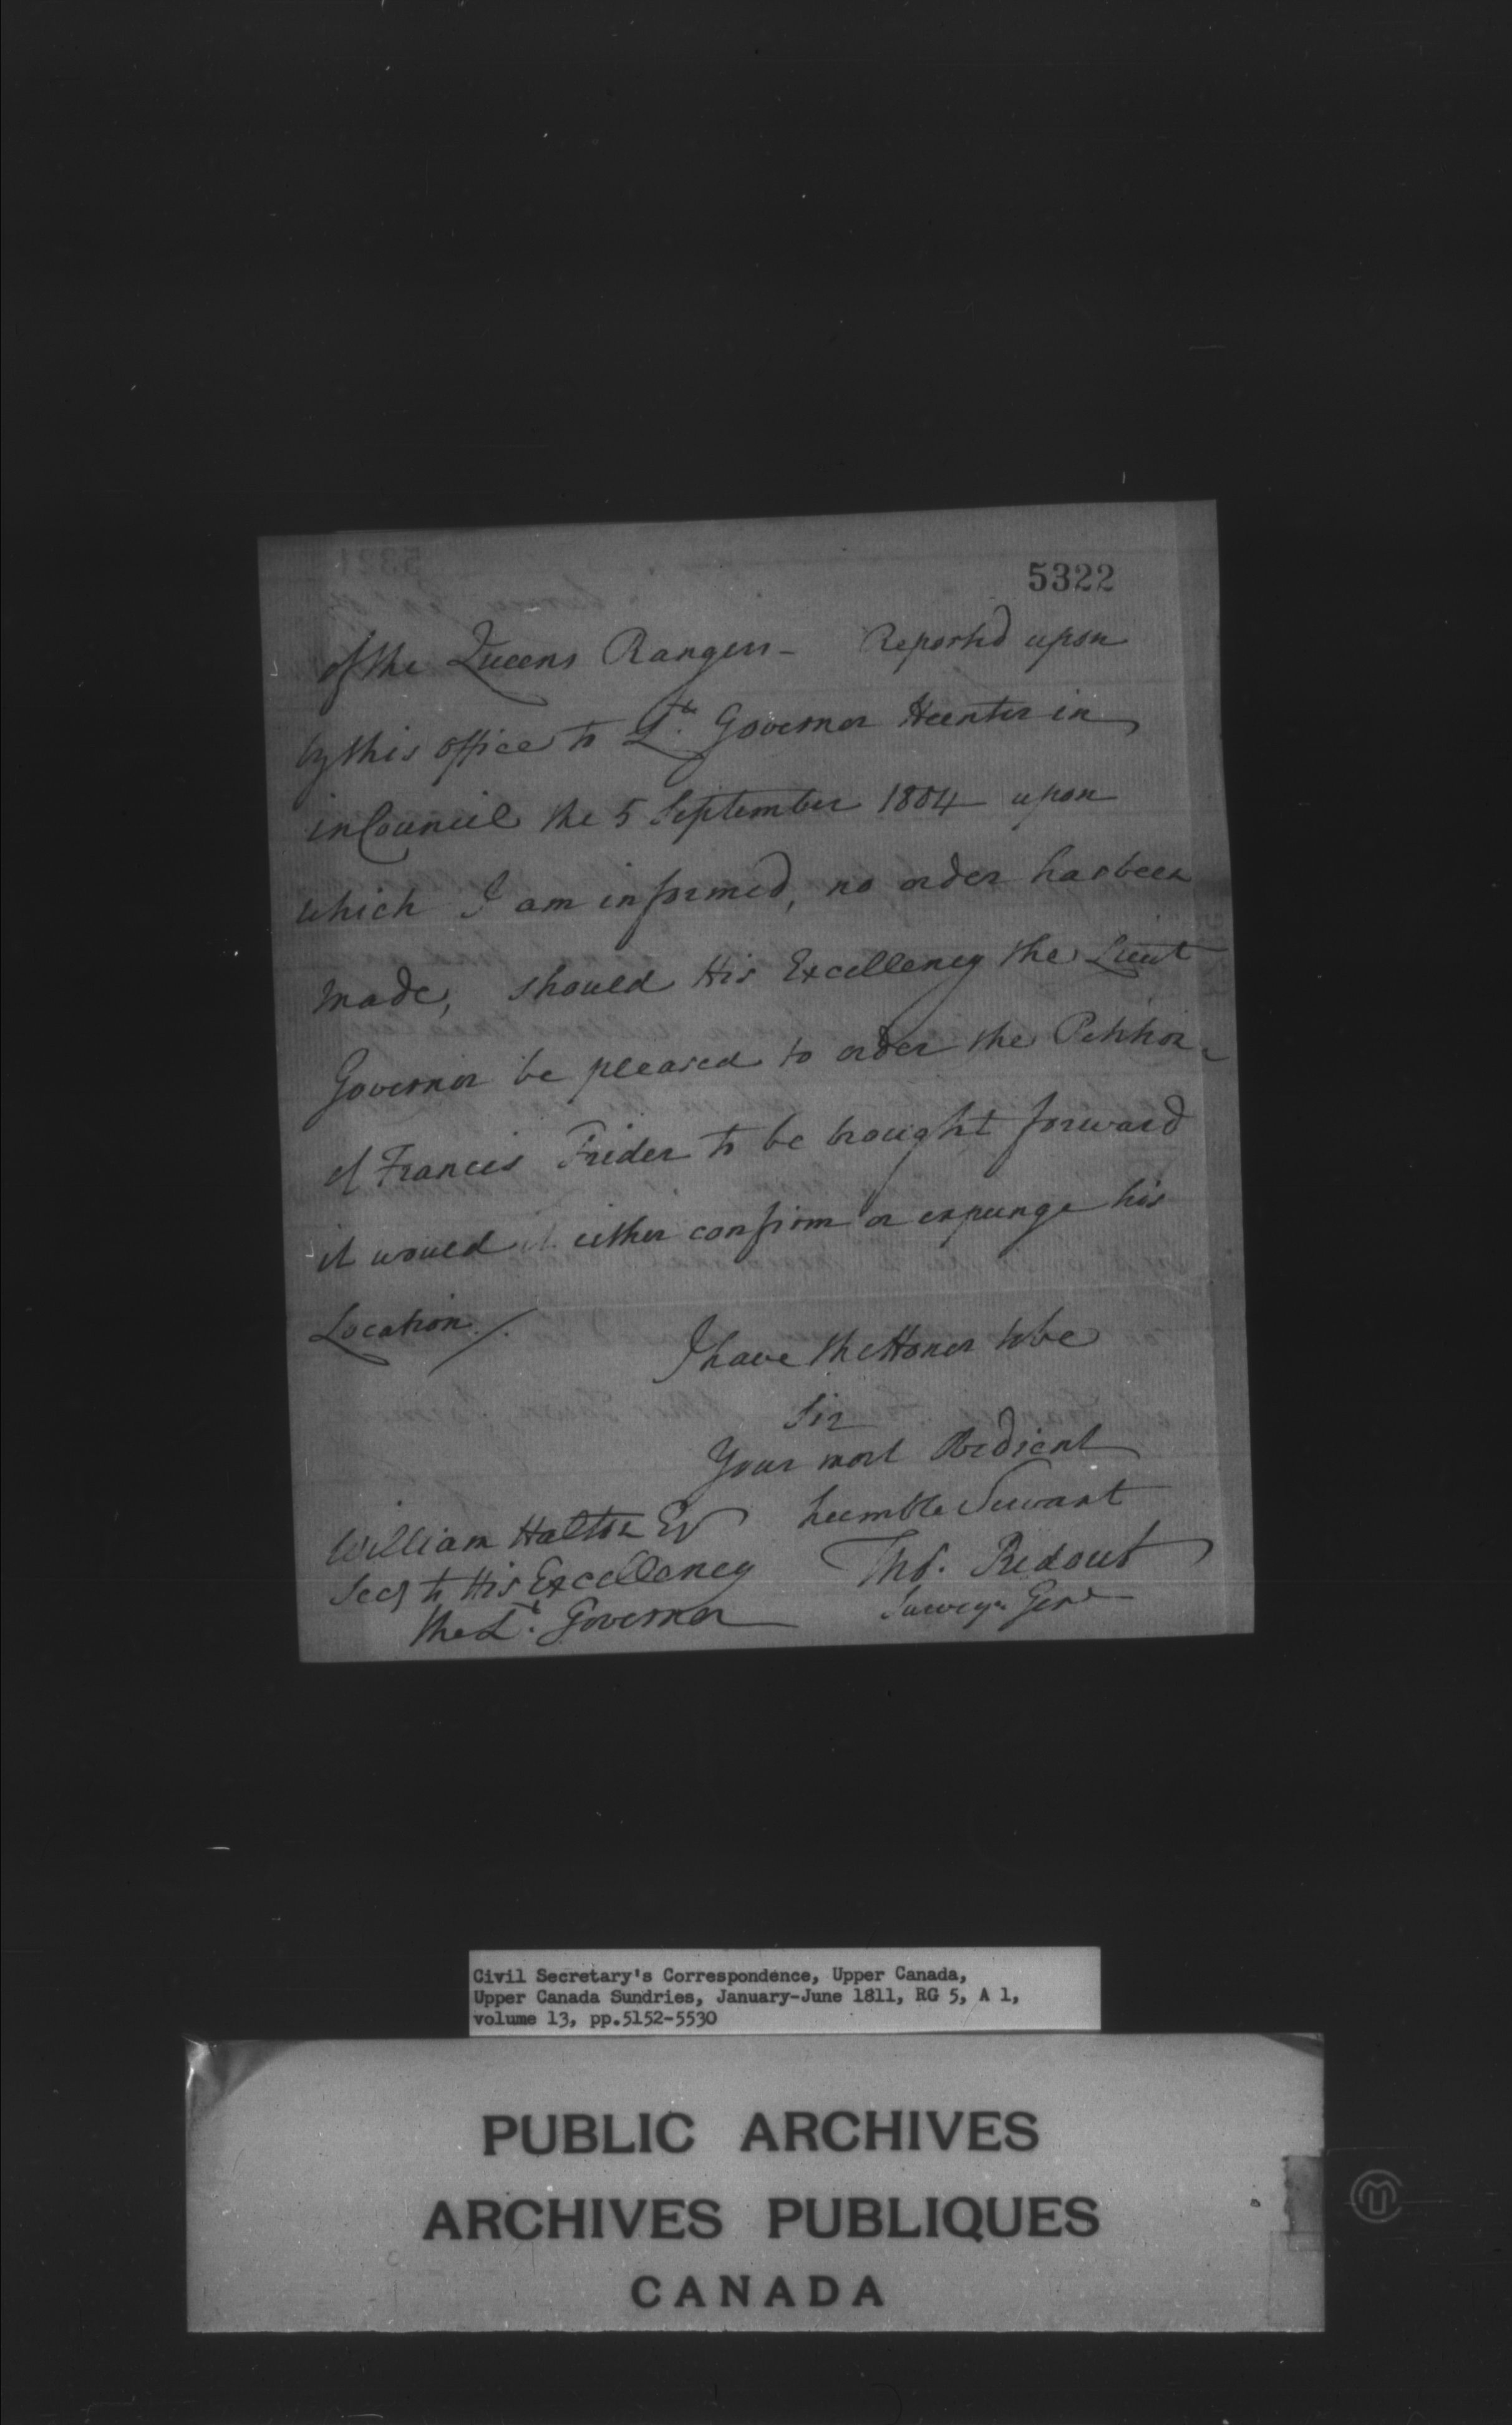 5322
of the Queens Rangers - Reported upon
by this office to Lt. Governor Hunter in
in Council the 5 September 1804 upon
which I am informed, no order has been
made, should His Excellency the Lieut
Governor be pleased to order the Petition
of Francis Frider to be brought forward
it would either confirm or expunge his
Location./.
I have the Honor to be
Sir
Your most Obedient
humble Servant
Thos. Ridout
Surveyr Genl
William Halton Esq
Secy to His Excellency
the Lt. Governor
Civil Secretary's Correspondence, Upper Canada,
Upper Canada Sundries, January-June 1811, RG 5, A 1,
volume 13, pp.5152-5530
PUBLIC ARCHIVES
ARCHIVES PUBLIQUES
CANADA